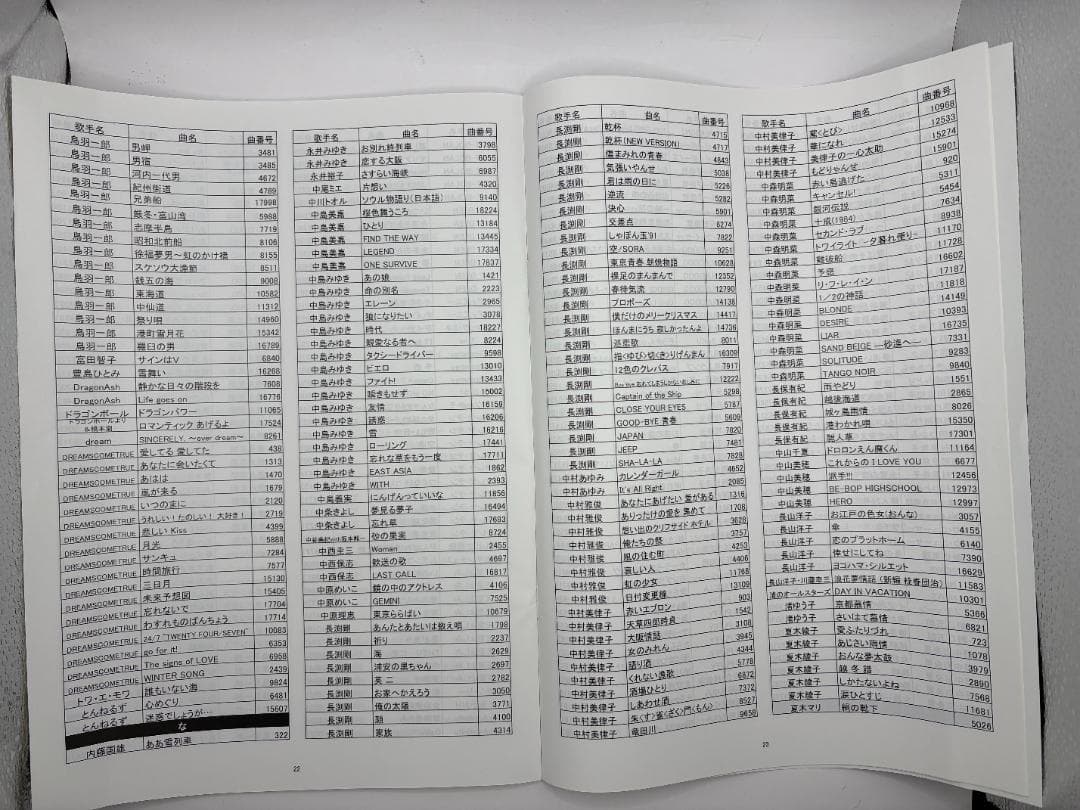 歌手名 曲名 曲番号
鳥羽一郎 男岬 3481
鳥羽一郎 男宿 3485
鳥羽一郎 河内一代男 4672
鳥羽一郎 紀州街道 4789
鳥羽一郎 兄弟船 17998
鳥羽一郎 厳冬・富山湾 5988
鳥羽一郎 志摩半島 7719
鳥羽一郎 昭和北前船 8106
鳥羽一郎 徐福夢男～虹のかけ橋 8155
鳥羽一郎 スケソウ大漁節 8511
鳥羽一郎 銭五の海 9008
鳥羽一郎 東海道 10582
鳥羽一郎 中仙道 11312
鳥羽一郎 祭り唄 14960
鳥羽一郎 港町雪月花 15342
鳥羽一郎 羅臼の男 16789
富田智子 サインはV 6840
豊島ひとみ 雪舞い 16268
DragonAsh 静かな日々の階段を 7608
DragonAsh Life goes on 16776
ドラゴンボール ドラゴンパワー 11065
ロマンティックあげるよ 17524
dream SINCERELY. ～over dream～ 8261
DREAMSCOMETRUE 愛してる 愛してた 438
DREAMSCOMETRUE あなたに会いたくて 1313
DREAMSCOMETRUE あはは 1470
DREAMSCOMETRUE 嵐が来る 1679
DREAMSCOMETRUE いつのまに 2120
DREAMSCOMETRUE うれしい！たのしい！大好き！ 2719
DREAMSCOMETRUE 悲しい Kiss 4399
DREAMSCOMETRUE 月光 5888
DREAMSCOMETRUE サンキュ 7284
DREAMSCOMETRUE 時間旅行 7577
DREAMSCOMETRUE 三日月 15130
DREAMSCOMETRUE 未来予想図 15405
DREAMSCOMETRUE 忘れないで 17704
DREAMSCOMETRUE わすれものばんちょう 17714
DREAMSCOMETRUE 24/7 "TWENTY FOUR/SEVEN" 10083
DREAMSCOMETRUE go for it! 6353
DREAMSCOMETRUE The signs of LOVE 6958
DREAMSCOMETRUE WINTER SONG 2439
トワ・エ・モワ 誰もいない海 9824
とんねるず 心めぐり 6481
とんねるず 迷惑でしょうが… 15607
な
内藤国雄 ああ雪列車 322
22
歌手名 曲名 曲番号
永井みゆき お別れ終列車 3798
永井みゆき 恋する大阪 6055
永井裕子 さすらい海峡 6987
中尾ミエ 片想い 4320
中川トオル ソウル物語り(日本語) 9140
中島美嘉 桜色舞うころ 18224
中島美嘉 ひとり 13184
中島美嘉 FIND THE WAY 13445
中島美嘉 LEGEND 17334
中島美嘉 ONE SURVIVE 17837
中島みゆき あの娘 1421
中島みゆき 命の別名 2223
中島みゆき エレーン 2965
中島みゆき 狼になりたい 3078
中島みゆき 時代 18227
中島みゆき 親愛なる者へ 8224
中島みゆき タクシードライバー 9598
中島みゆき ピエロ 13010
中島みゆき ファイト! 13433
中島みゆき 瞬きもせず 15002
中島みゆき 友情 16159
中島みゆき 誘惑 16206
中島みゆき 雪 16216
中島みゆき ローリング 17441
中島みゆき 忘れな草をもう一度 17711
中島みゆき EAST ASIA 1862
中島みゆき WITH 2393
中島義実 にんげんっていいな 11856
中条きよし 夢見る夢子 16494
中条きよし 忘れ草 17693
枚の果実 8724
中西圭三 Woman 2455
中西保志 歓送の歌 4697
中西保志 LAST CALL 16817
中原めいこ 鏡の中のアクトレス 4106
中原めいこ GEMINI 7525
中原理恵 東京ららばい 10679
長渕剛 あんたとあたいは数え唄 1798
長渕剛 祈り 2237
長渕剛 海 2629
長渕剛 浦安の黒ちゃん 2697
長渕剛 英二 2782
長渕剛 お家へかえろう 3050
長渕剛 俺の太陽 3771
長渕剛 顔 4100
長渕剛 家族 4314
歌手名 曲名 曲番号
長渕剛 乾杯 4715
長渕剛 乾杯(NEW VERSION) 4717
長渕剛 傷まみれの青春 4843
長渕剛 気張いやんせ 5038
長渕剛 君は雨の日に 5226
長渕剛 逆流 5282
長渕剛 決心 5901
長渕剛 交差点 6274
長渕剛 しゃぼん玉'91 7822
長渕剛 空/SORA 9251
長渕剛 東京青春朝焼物語 10628
長渕剛 裸足のまんまで 12352
長渕剛 春待気流 12790
長渕剛 プロポーズ 14138
長渕剛 僕だけのメリークリスマス 14417
長渕剛 ほんまにうち寂しかったんよ 14736
長渕剛 巡恋歌 8011
長渕剛 指<ゆび>切<き>りげんまん 16309
長渕剛 12色のクレパス 7917
長渕剛 12222
長渕剛 Captain of the Ship 5298
長渕剛 CLOSE YOUR EYES 5787
長渕剛 GOOD-BYE 青春 5609
長渕剛 JAPAN 7820
長渕剛 JEEP 7481
長渕剛 SHA-LA-LA 7828
中村あゆみ カレンダーガール 4652
中村あゆみ It's All Right 2085
中村雅俊 あなたにあげたい愛がある 1316
中村雅俊 ありったけの愛を集めて 1708
中村雅俊 想い出のクリフサイド ホテル 3628
中村雅俊 俺たちの祭 3757
中村雅俊 風の住む町 4253
中村雅俊 哀しい人 4406
中村雅俊 虹の少女 11768
中村雅俊 日付変更線 13109
中村美律子 赤いエプロン 903
中村美律子 天草四郎時貞 1542
中村美律子 大阪情話 3108
中村美律子 女のみれん 3945
中村美律子 語り酒 4344
中村美律子 くれない渔歌 5778
中村美律子 酒場ひとり 6872
中村美律子 しあわせ酒 7372
中村美律子 朱<す>雀<ざく>門<もん> 8527
中村美律子 竜田川 9658
23
歌手名 曲名 曲番号
中村美律子 鳶<とび> 10968
中村美律子 華になれ 12533
中村美律子 美律子の一心太助 15274
中村美律子 もどりゃんせ 15901
中森明菜 赤い鳥逃げた 920
中森明菜 キャンセル! 5311
中森明菜 銀河伝説 5454
中森明菜 十戒(1984) 7634
中森明菜 セカンド・ラブ 8938
中森明菜 トワイライト -夕暮れ便り- 11170
中森明菜 難破船 11728
中森明菜 予感 16602
中森明菜 リ・フ・レ・イ・ン 17187
中森明菜 1/2の神話 11818
中森明菜 BLONDE 14149
中森明菜 DESIRE 10393
中森明菜 LIAR 16735
中森明菜 SAND BEIGE ―砂漠へ― 7331
中森明菜 SOLITUDE 9283
中森明菜 TANGO NOIR 9840
長保有紀 雨やどり 1551
長保有紀 越後海道 2865
長保有紀 城ヶ島雨情 8026
長保有紀 港わかれ唄 15350
長保有紀 詫人草 17301
中山千夏 ドロロンえん魔くん 11164
中山美穂 これからの I LOVE YOU 6677
中山美穂 派手!!! 12456
中山美穂 BE-BOP HIGHSCHOOL 12973
中山美穂 HERO 12997
長山洋子 お江戸の色女(おんな) 3057
長山洋子 傘 4155
長山洋子 恋のプラットホーム 6140
長山洋子 倖せにしてね 7390
長山洋子 ヨコハマ・シルエット 16629
長山洋子・川藤幸三 浪花夢情話(新桂春団治) 11583
渚のオールスターズ DAY IN VACATION 10301
渚ゆう子 京都慕情 5366
渚ゆう子 さいはて慕情 6821
夏木綾子 愛ふたりづれ 723
夏木綾子 あじさい雨情 1078
夏木綾子 おんな夢太鼓 3979
夏木綾子 線冬路 2890
夏木綾子 しかたないよね 7568
夏木綾子 涙ひとすじ 11681
夏木マリ 絹の靴下 5026